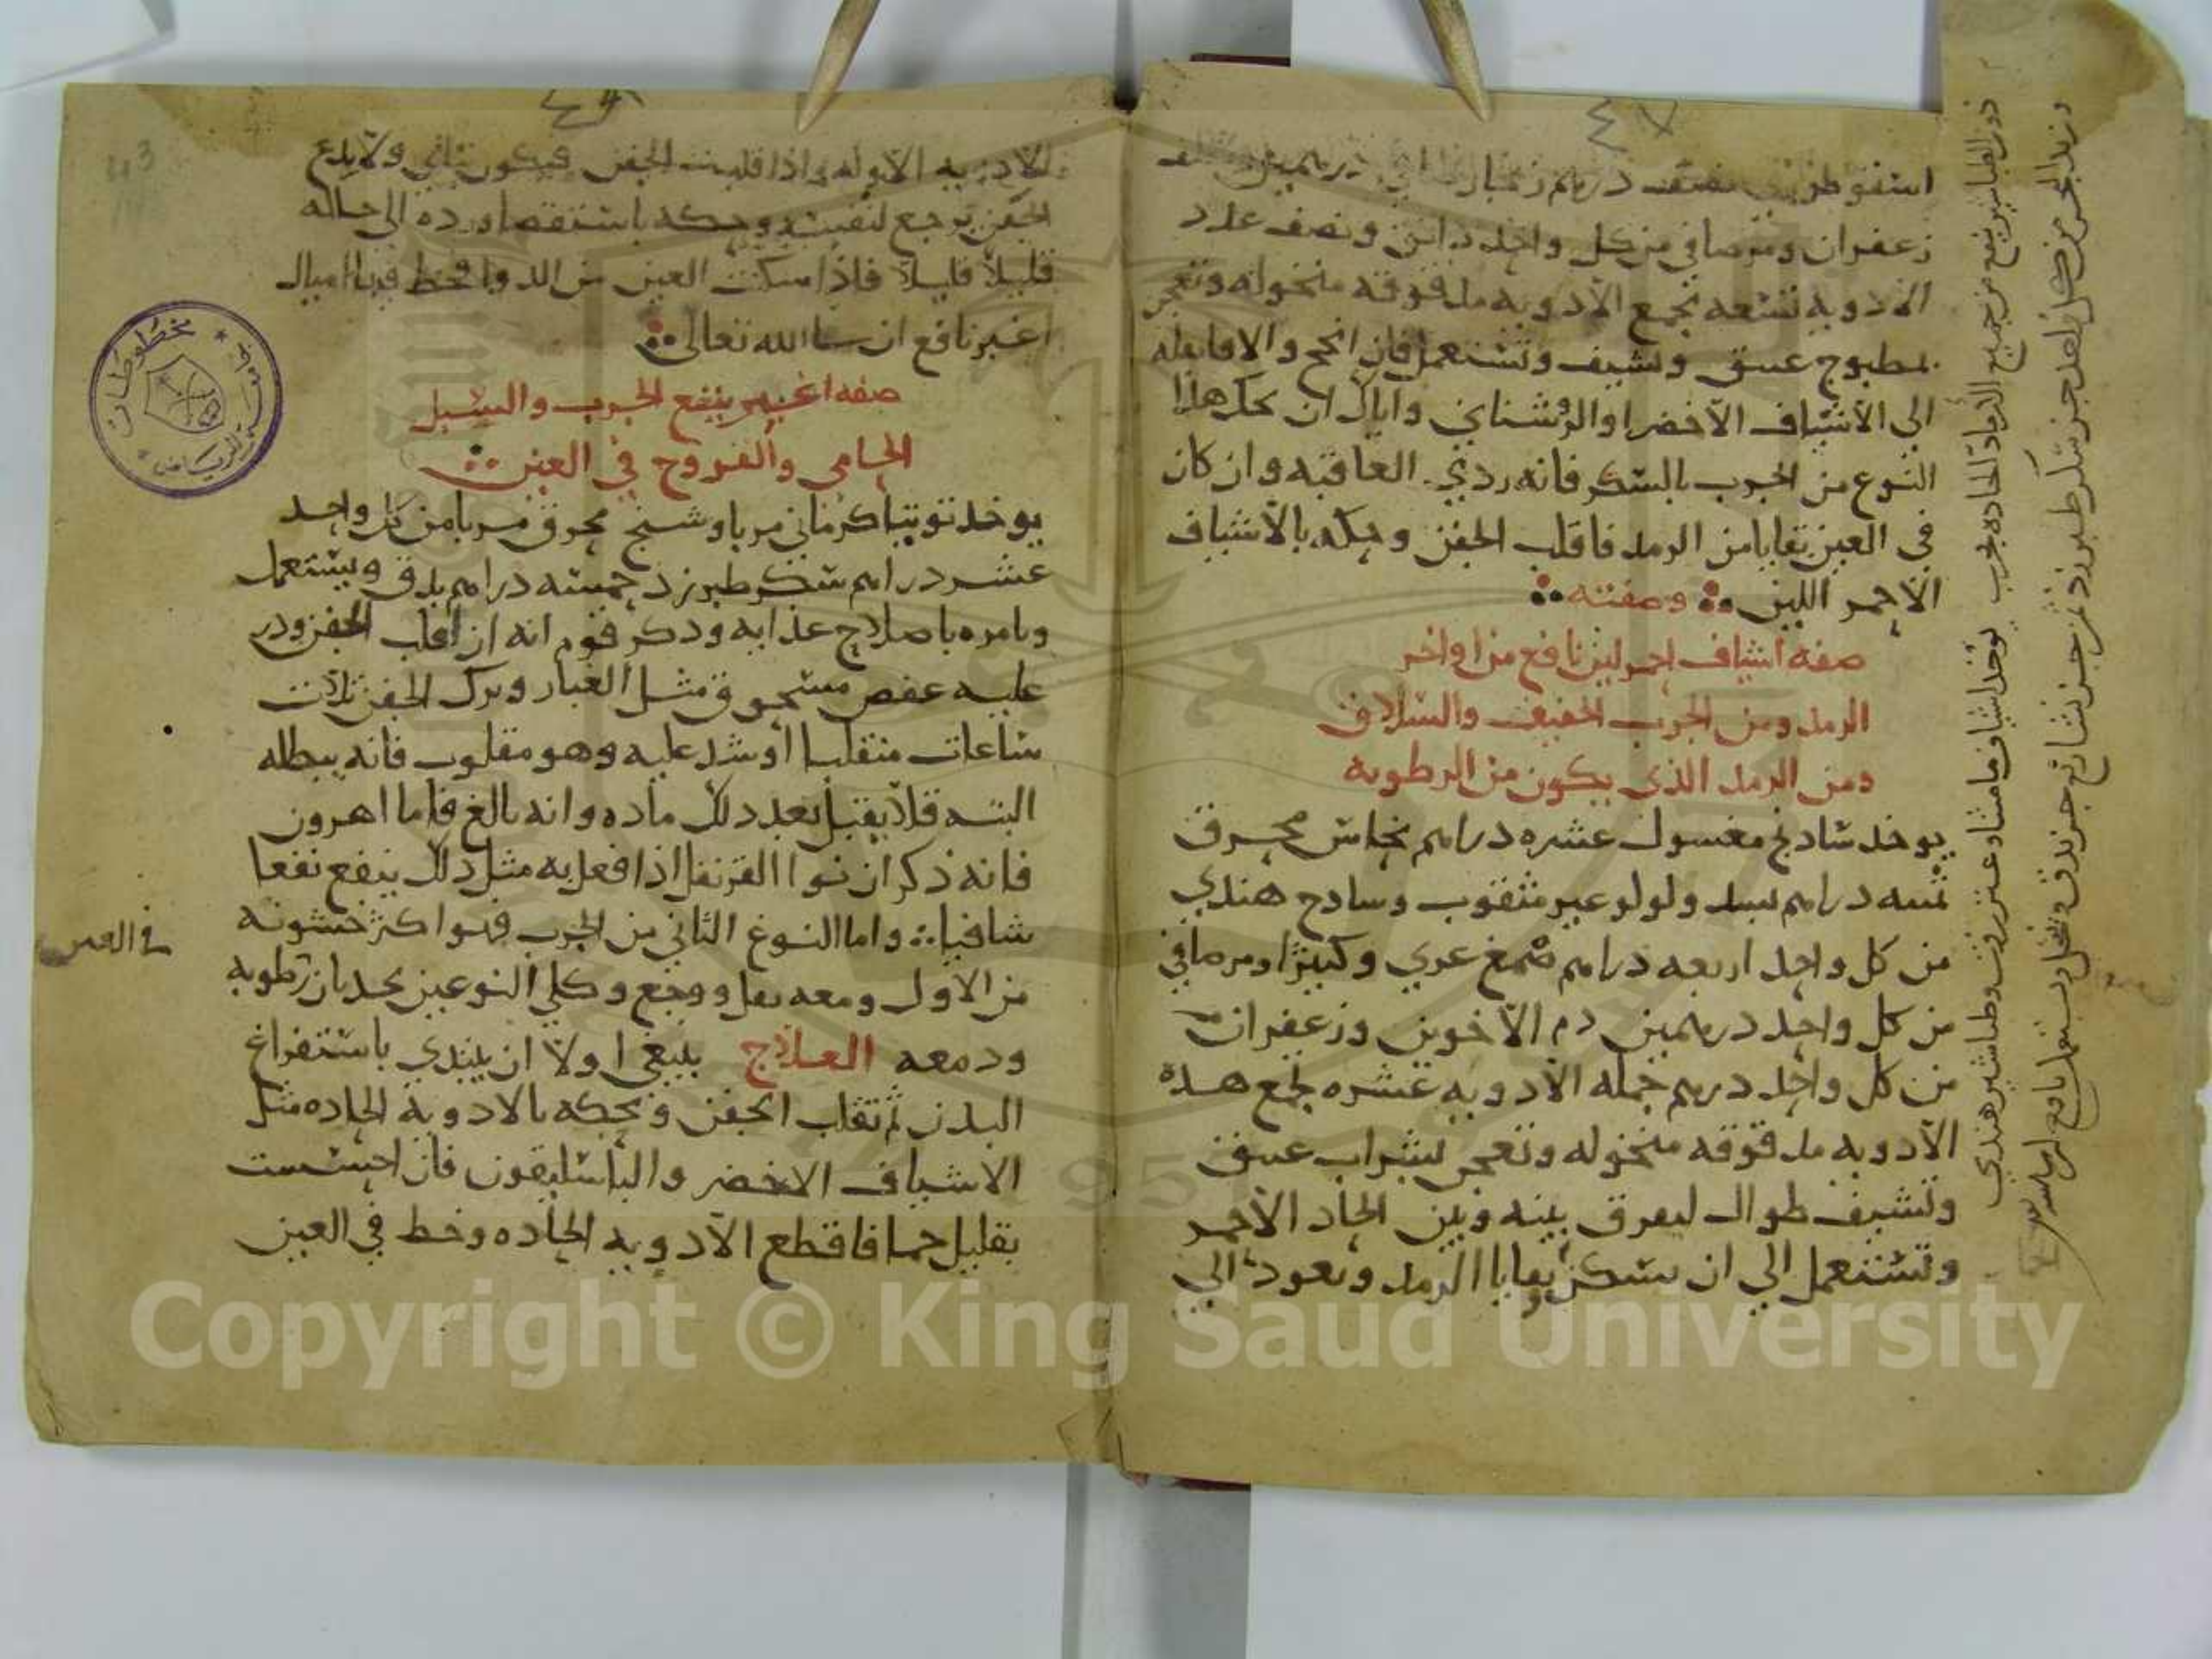 ٤٧
اسقوطري نصف درهم زنجار صافي درهمين ونصف
زعفران ومرصافي من كل واحد دانق ونصف عدد
الادويه تسعه تجمع الادويه مدقوقه منخوله وتعجن
بمطبوج عتيق وتشيف وتستعمل فان انجح والا فانقله
الى الاشياف الاخضر او الروشناي واياك ان تحك هذا
النوع من الجرب بالسكر فانه ردي العاقبه وان كان
في العين بقايا من الرمد فاقلب الجفن وحكه بالاشياف
الاحمر اللين وصفته
صفه اشياف احمر لين نافع من اواخر
الرمد ومن الجرب الخفيف والسلاق
ومن الرمد الذي يكون من الرطوبه
يوخد شادنج مغسول عشره دراهم نحاس محرق
ثمنيه دراهم بسد ولولو غير مثقوب وسادج هندي
من كل واحد اربعه دراهم صمغ عربي وكثيرا ومرصافي
من كل واحد درهمين دم الاخوين وزعفران
من كل واحد درهم جمله الادويه عشره تجمع هده
الادويه مدقوقه منخوله وتعجن بشراب عتيق
وتشيف طوال ليفرق بينه وبين الحاد الاحمر
وتستعمل الي ان تسكن بقايا الرمد وتعود الي
ينفع من جميع المواد الحاده مجرب يوخد اشياف ماميثا وعنزروت وطباشير هندي
وزبد البحر من كل واحد جز سكر طبرزد جز نشا جز يدق وينخل ويستعمل نافع
٤٨
43
الادويه الاوله واذا قلبت الجفن فيكون بتاني ولا تدع
الجفن يرجع لنفسه وحكه باستقصا ورده الى حاله
قليلا قليلا فاذا سكنت العين من الدوا فخط فيها اميال
اغبر نافع ان سا الله تعالى
صفه اغبر ينفع الجرب والسبل
الحامي والقروح في العين
يوخد توتيا كرماني مربا وشنج محرق مربا من كل واحد
عشر دراهم سكر طبرزد خمسه دراهم يدق ويستعمل
ويامره باصلاح غذايه ودكر قوم انه ان اقلب الجفن ودر
عليه عفص مسحوق مثل الغبار وترك الجفن ثلاث
ساعات منقلبا او شد عليه وهو مقلوب فانه يبطله
البته فلا يقبل بعد دلك ماده وانه بالغ فاما اهرون
فانه ذكر ان نوا القرنفل اذا فعل به مثل دلك ينفع نفعا
شافيا واما النوع الثاني من الجرب فهو اكثر خشونه
من الاول ومعه ثقل ووجع وكلي النوعين يحدثان رطوبه
في العين
ودمعه العلاج ينبغي اولا ان يبتدي باستفراغ
البدن ثم تقلب الجفن وتحكه بالادويه الحاده مثل
الاشياف الاخضر والباسليقون فان احسست
بقليل حما فاقطع الادويه الحاده وخط في العين
مخطوطات
الرياض
Copyright © King Saud University